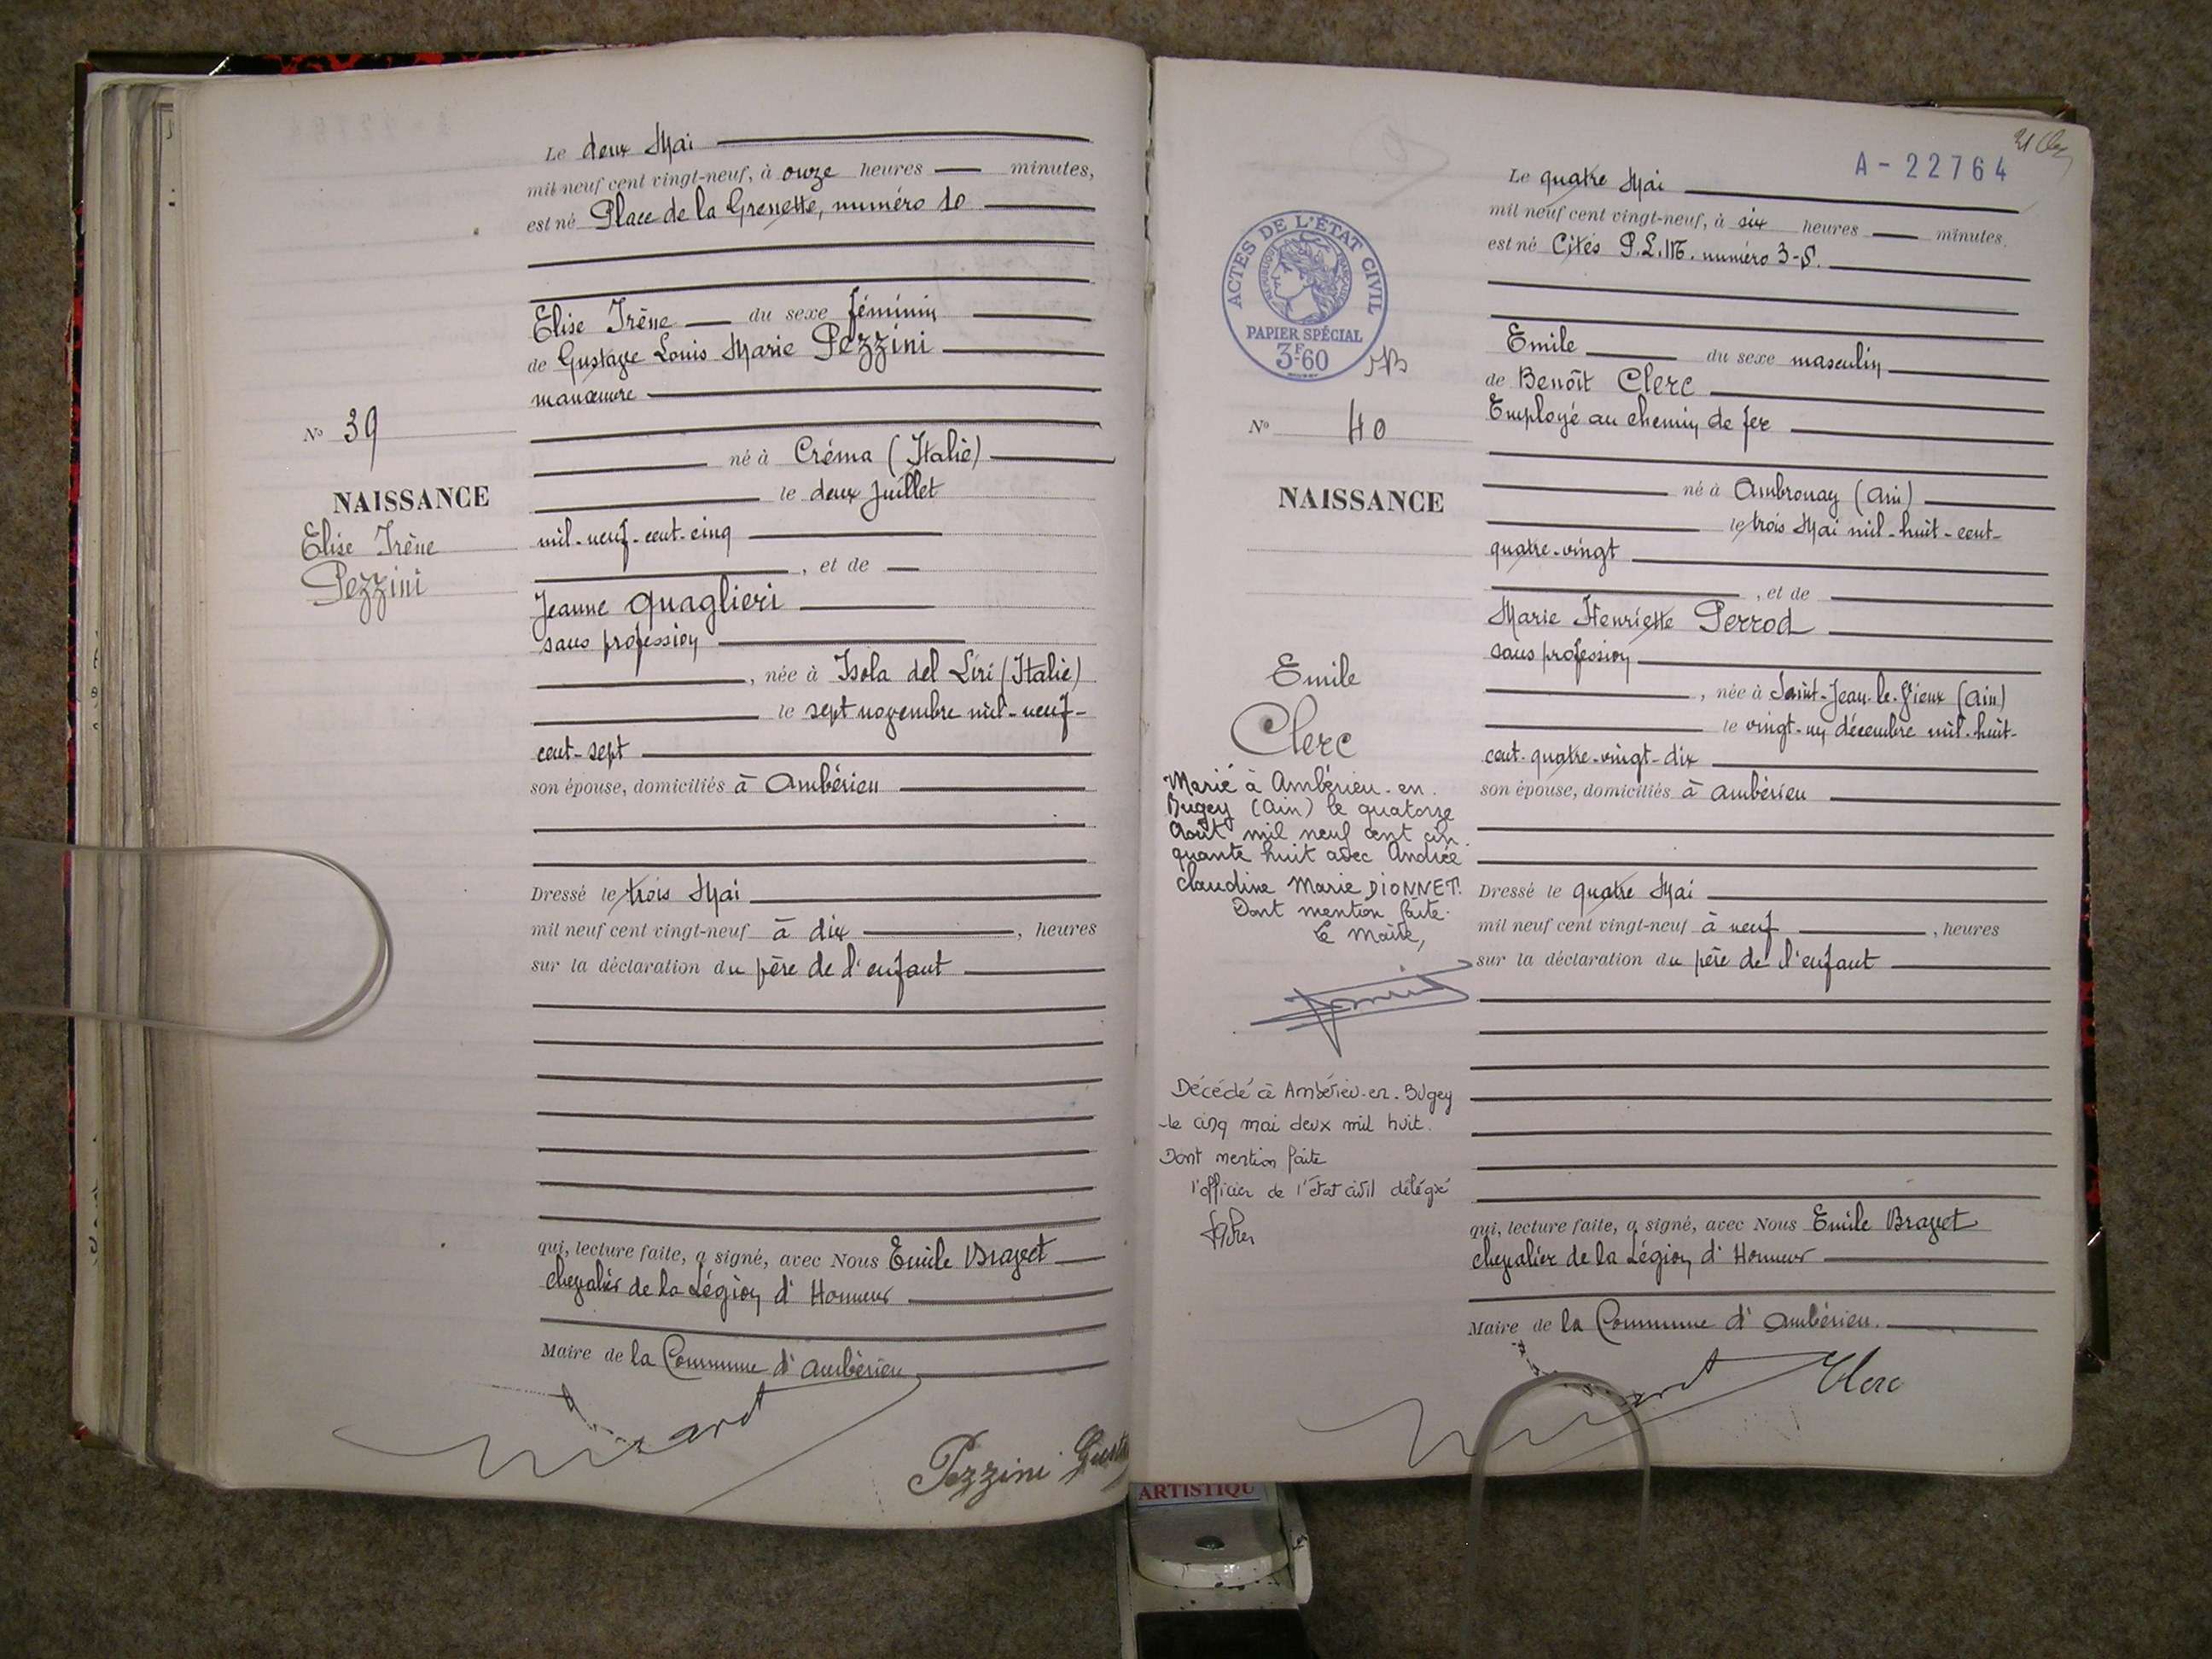 Le deux Mai
mil neuf cent vingt-neuf, à onze heures minutes,
est né Place de la Grenette, numéro 10
Elise Irène du sexe féminin
de Gustave Louis Marie Pezzini
manœuvre
né à Créma (Italie)
le deux Juillet
mil-neuf-cent-cinq
, et de
Jeanne Quaglieri
sans profession
, née à Isola del Liri (Italie)
le sept novembre mil-neuf-
cent-sept
son épouse, domiciliés à Ambérieu
Dressé le trois Mai
mil neuf cent vingt-neuf à dix , heures
sur la déclaration du père de l'enfant
qui, lecture faite, a signé, avec Nous Emile Bravet
chevalier de la Légion d'Honneur
Maire de la Commune d'Ambérieu
Pezzini
N° 39
NAISSANCE
Elise Irène
Pezzini
A-22764
ACTES DE L'ÉTAT CIVIL
RÉPUBLIQUE FRANÇAISE
PAPIER SPÉCIAL
3F-60
N° 40
NAISSANCE
Emile
Clerc
Marié à Ambérieu-en-
Bugey (Ain) le quatorze
Août mil neuf cent cin-
quante huit avec Andrée
Claudine Marie DIONNET.
Dont mention faite.
Le Maire,
Décédé à Ambérieu-en-Bugey
le cinq mai deux mil huit.
Dont mention faite
l'officier de l'état civil délégué
Le quatre Mai
mil neuf cent vingt-neuf, à six heures minutes,
est né Cités P.L.M. numéro 3-S.
Emile du sexe masculin
de Benoît Clerc
Employé au chemin de fer
né à Ambronay (Ain)
le trois Mai mil-huit-cent-
quatre-vingt
, et de
Marie Henriette Perrod
sans profession
, née à Saint-Jean-le-Vieux (Ain)
le vingt-un décembre mil-huit-
cent-quatre-vingt-dix
son épouse, domiciliés à Ambérieu
Dressé le quatre Mai
mil neuf cent vingt-neuf à neuf , heures
sur la déclaration du père de l'enfant
qui, lecture faite, a signé, avec Nous Emile Bravet
chevalier de la Légion d'Honneur
Maire de la Commune d'Ambérieu.
Clerc
ARTISTIQU